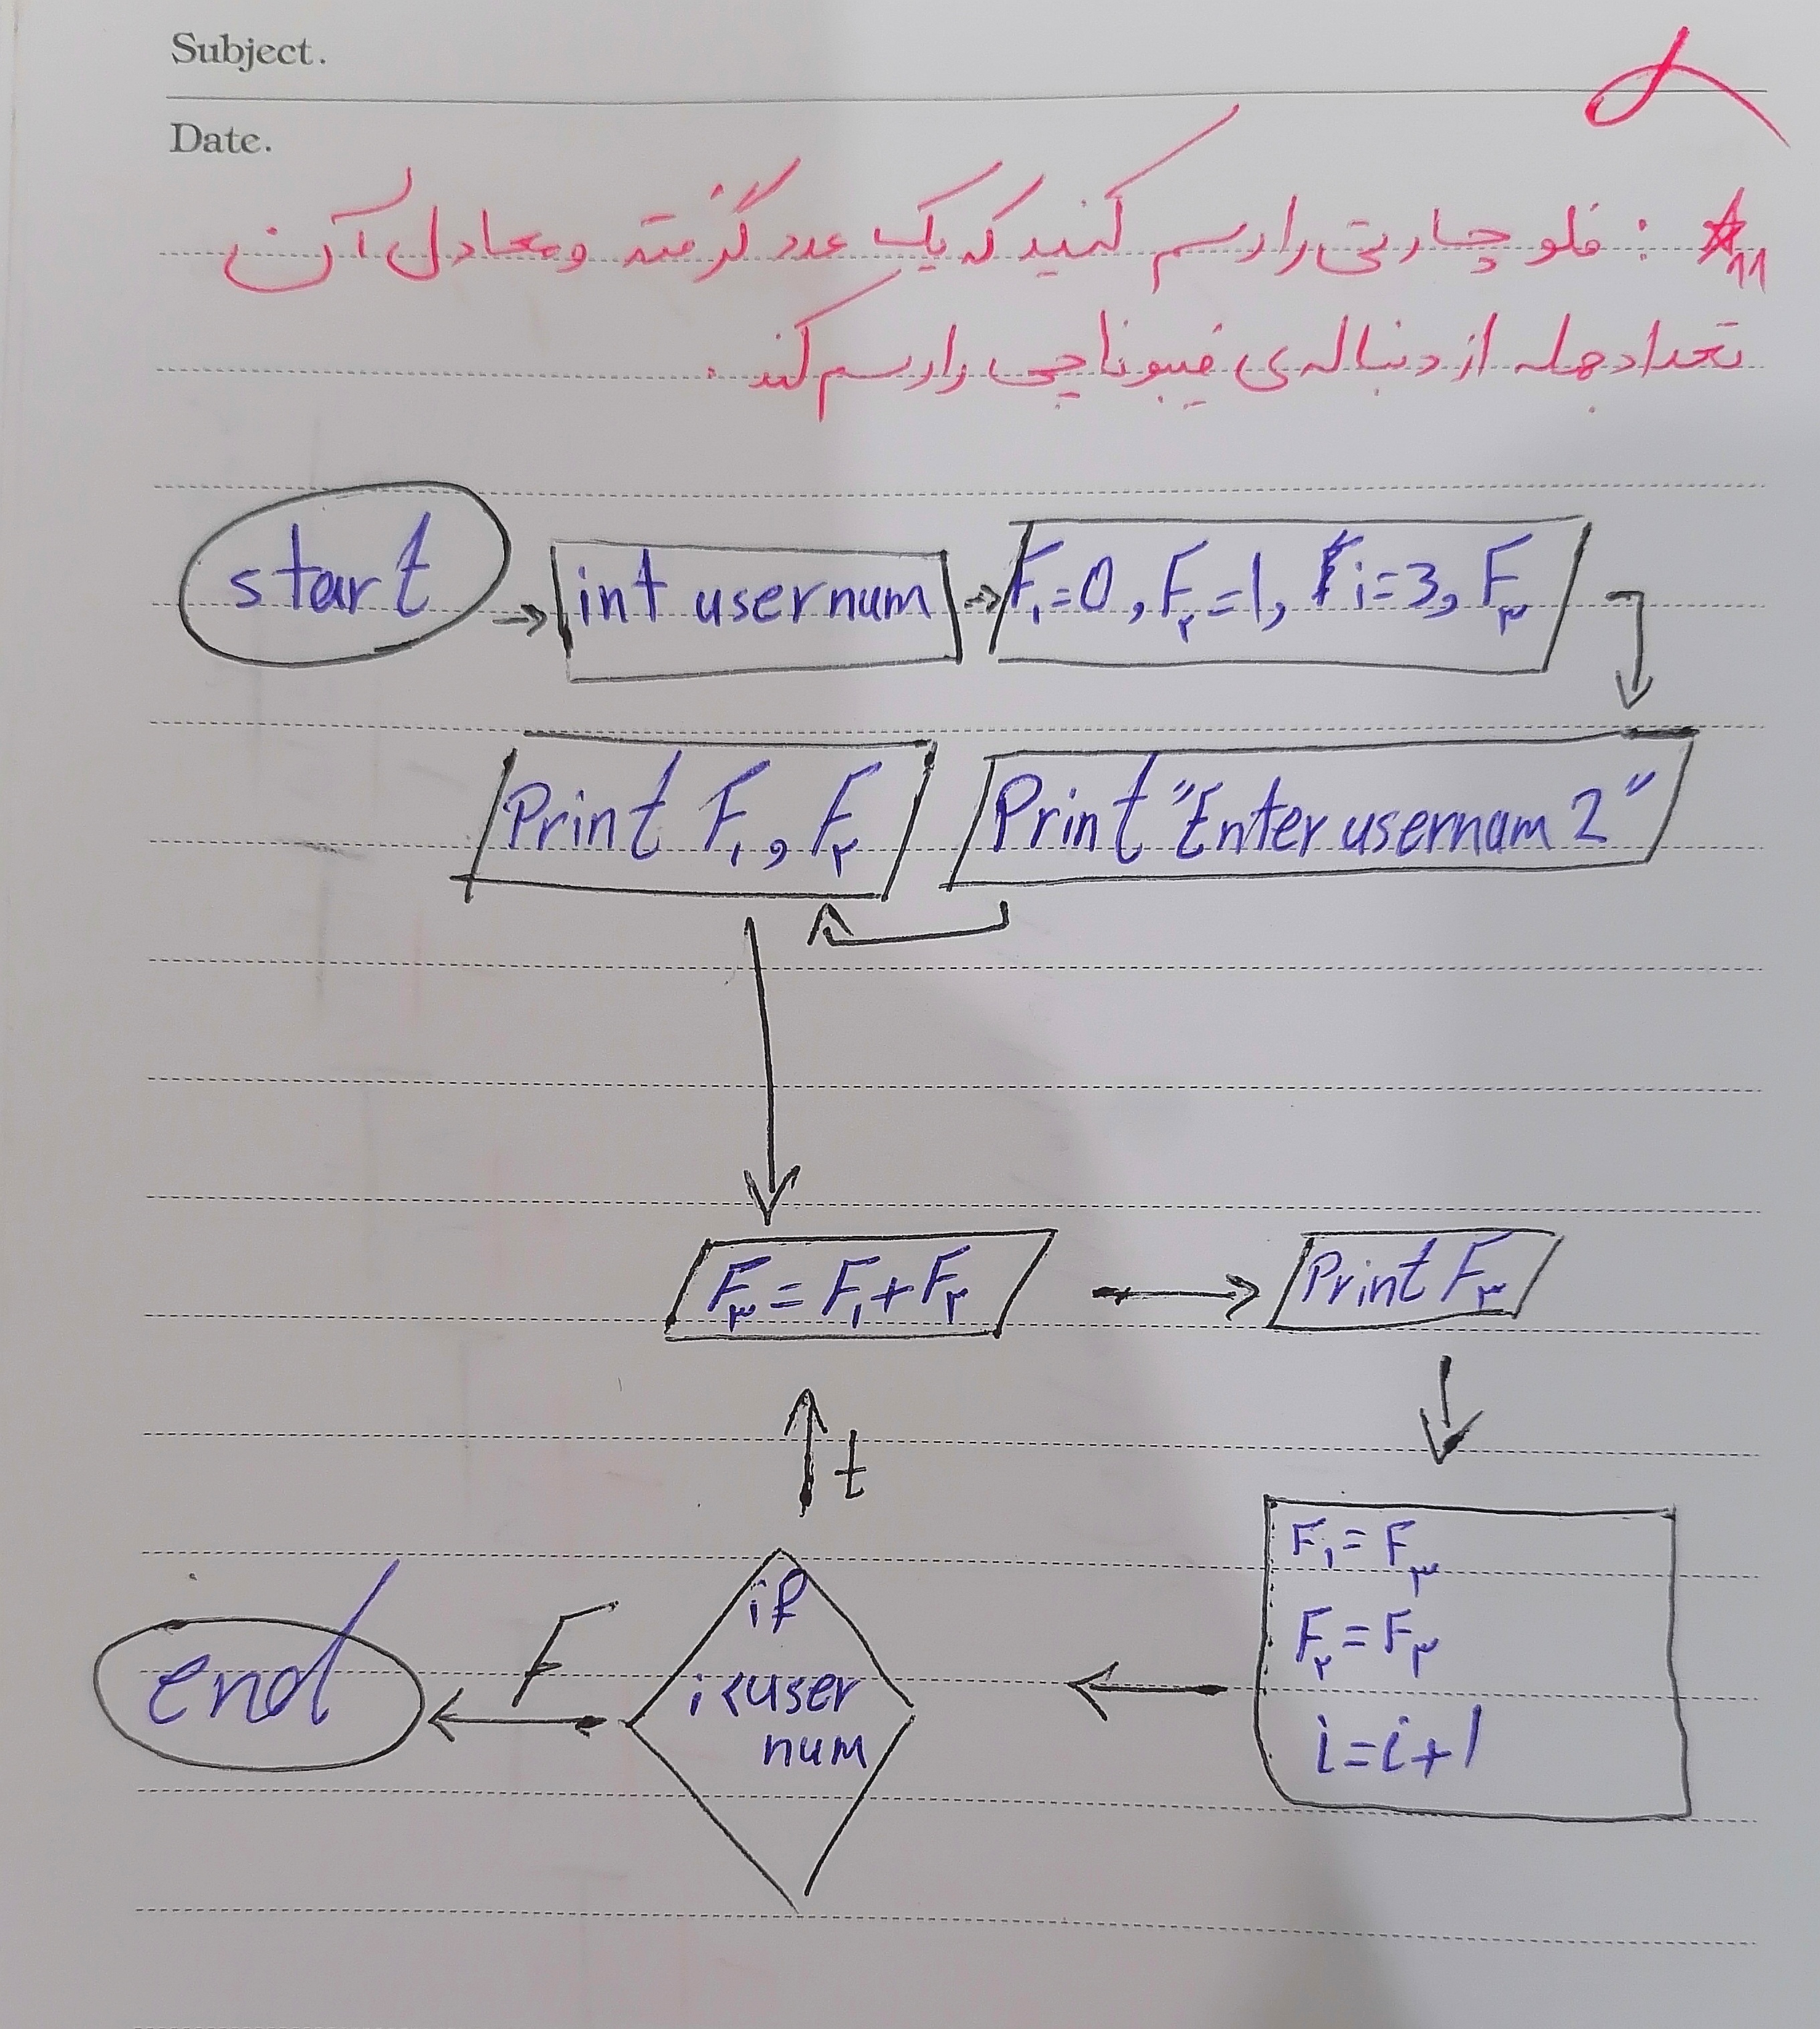 Subject.
Date.
☆11 : فلو چارتی را رسم کنید که یک عدد گرفته و معادل آن
تعداد جمله از دنباله ی فیبوناچی را رسم کند.
start
int usernum
F۱=0, F۲=1, i=3, F۳
Print F۱, F۲
Print "Enter usernam 2"
F۳=F۱+F۲
Print F۳
t
F۱=F۳
F۲=F۳
i=i+1
if
i<user
num
F
end